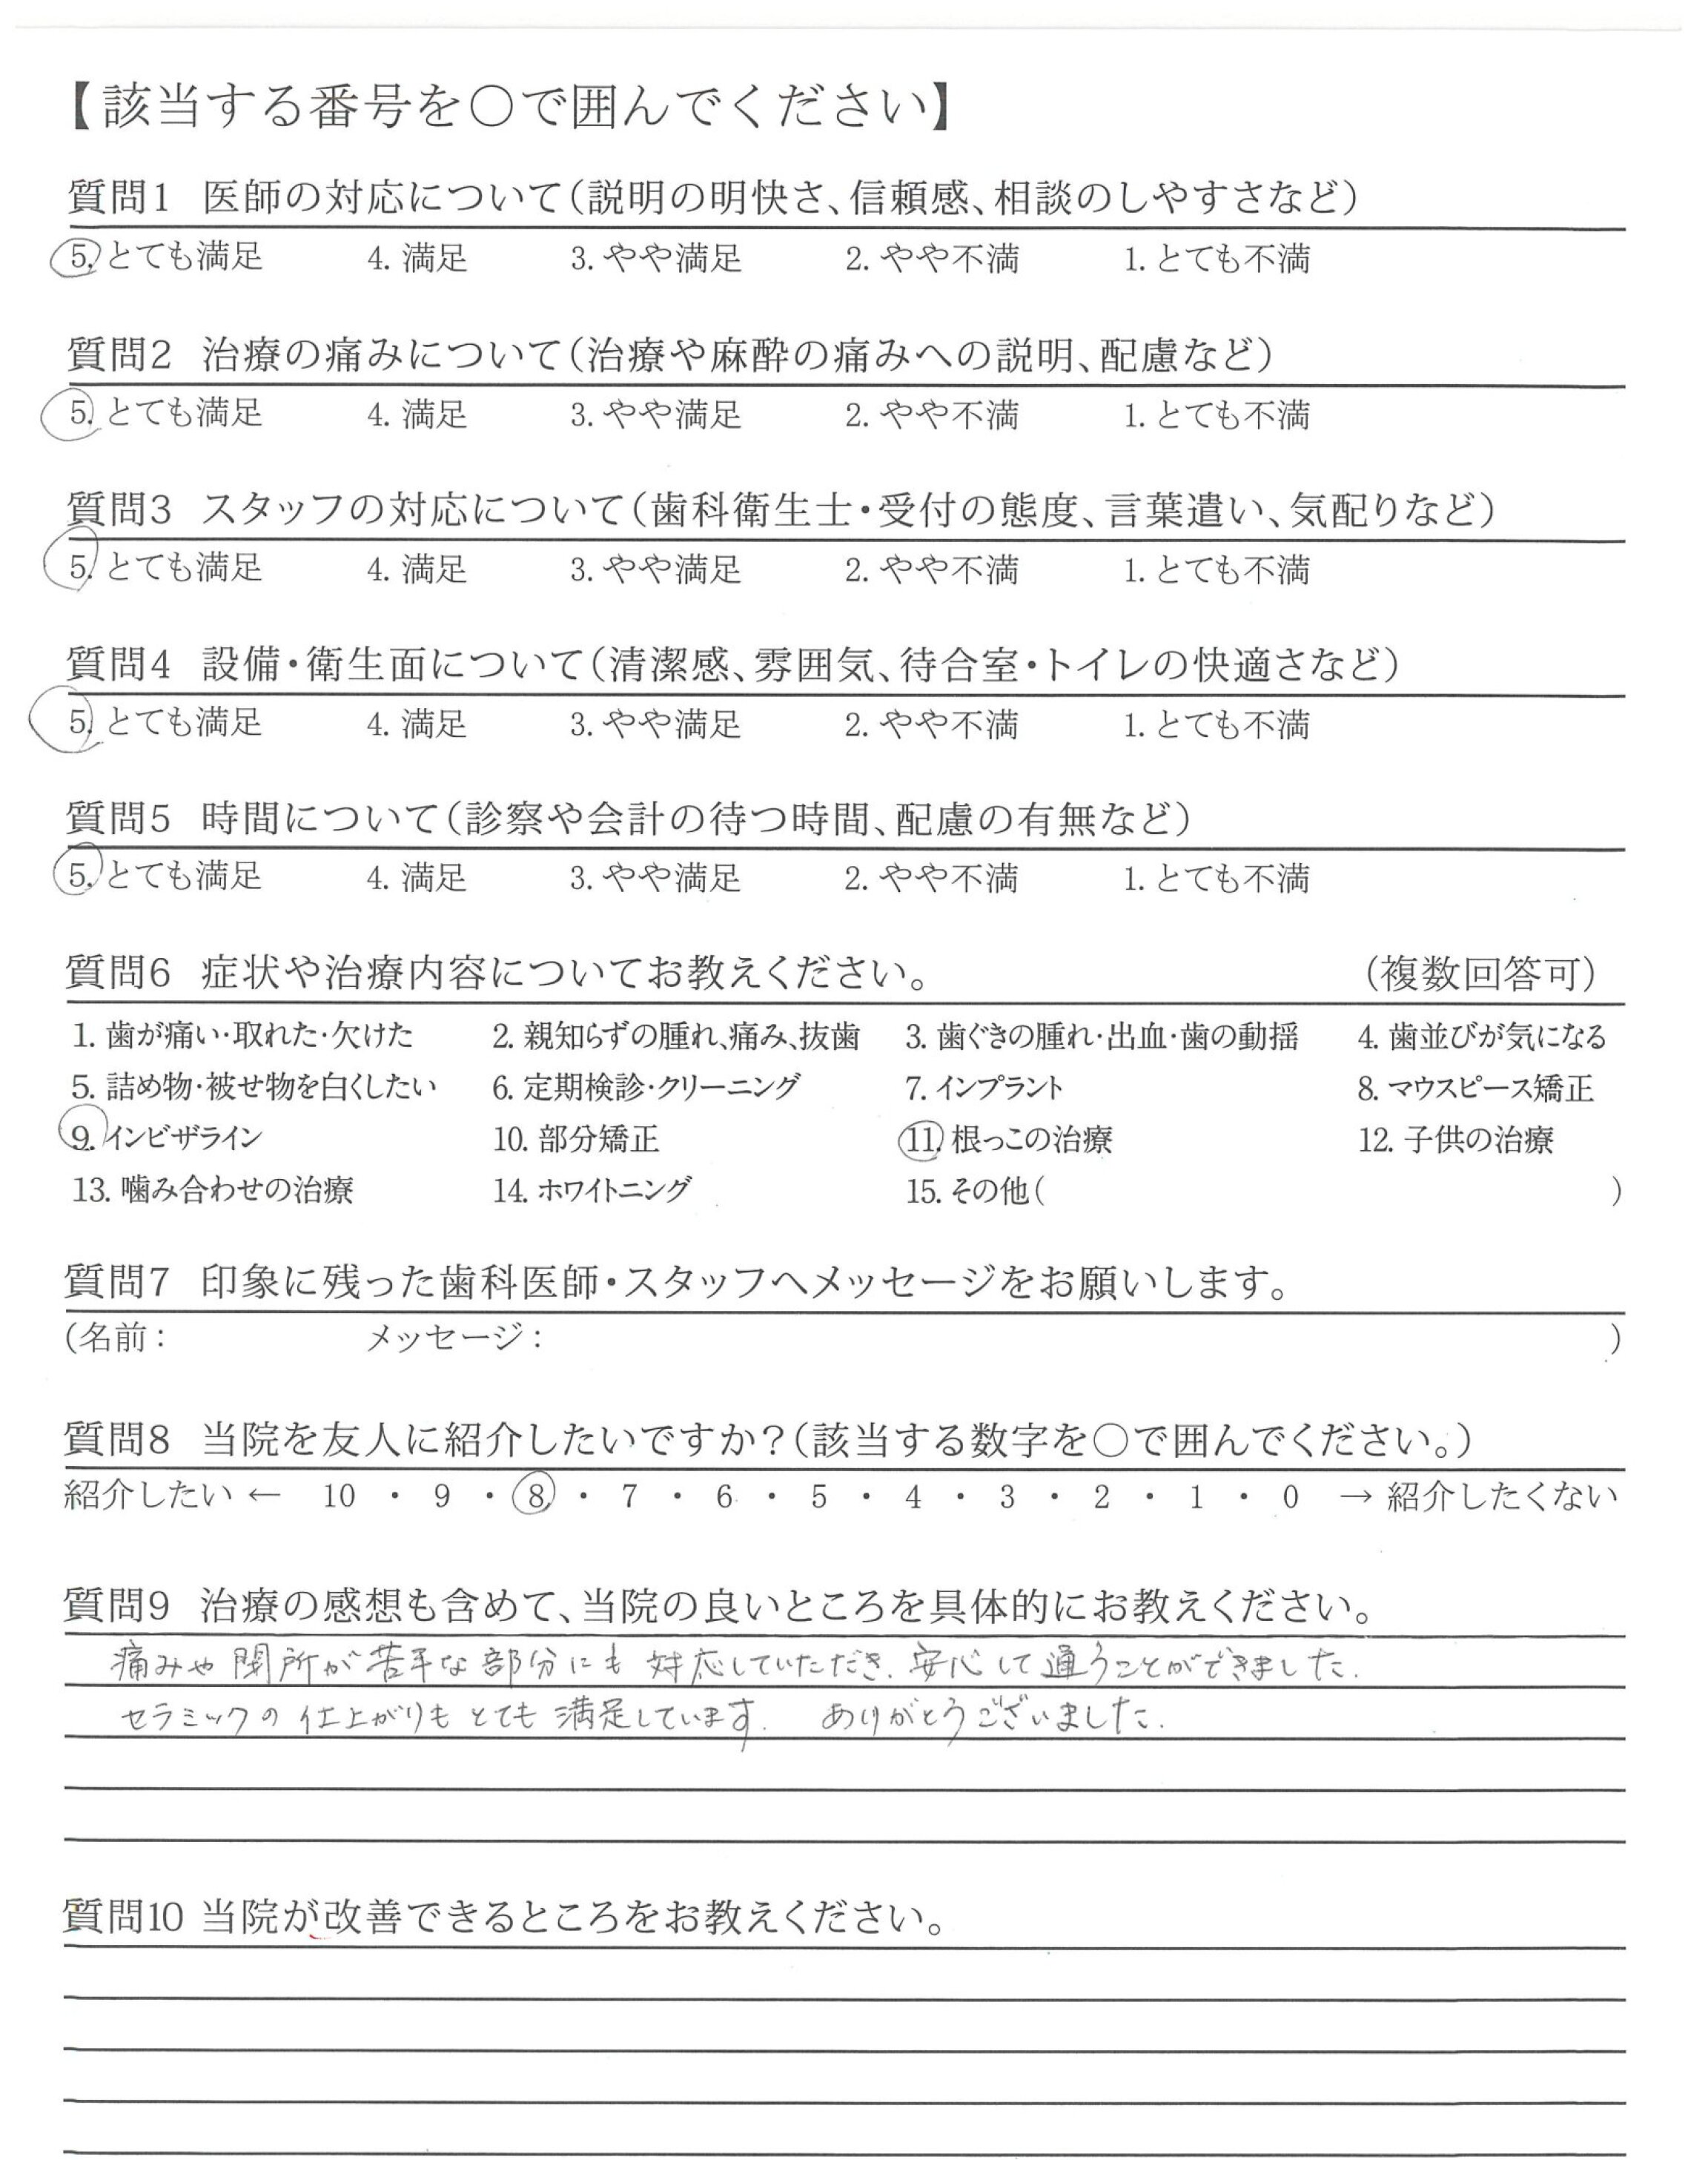 【該当する番号を○で囲んでください】
質問1 医師の対応について(説明の明快さ、信頼感、相談のしやすさなど)
5. とても満足 4. 満足 3. やや満足 2. やや不満 1. とても不満
質問2 治療の痛みについて(治療や麻酔の痛みへの説明、配慮など)
5. とても満足 4. 満足 3. やや満足 2. やや不満 1. とても不満
質問3 スタッフの対応について(歯科衛生士・受付の態度、言葉遣い、気配りなど)
5. とても満足 4. 満足 3. やや満足 2. やや不満 1. とても不満
質問4 設備・衛生面について(清潔感、雰囲気、待合室・トイレの快適さなど)
5. とても満足 4. 満足 3. やや満足 2. やや不満 1. とても不満
質問5 時間について(診察や会計の待つ時間、配慮の有無など)
5. とても満足 4. 満足 3. やや満足 2. やや不満 1. とても不満
質問6 症状や治療内容についてお教えください。 (複数回答可)
1. 歯が痛い・取れた・欠けた 2. 親知らずの腫れ、痛み、抜歯 3. 歯ぐきの腫れ・出血・歯の動揺 4. 歯並びが気になる
5. 詰め物・被せ物を白くしたい 6. 定期検診・クリーニング 7. インプラント 8. マウスピース矯正
9. インビザライン 10. 部分矯正 11. 根っこの治療 12. 子供の治療
13. 噛み合わせの治療 14. ホワイトニング 15. その他( )
質問7 印象に残った歯科医師・スタッフへメッセージをお願いします。
(名前: メッセージ: )
質問8 当院を友人に紹介したいですか?(該当する数字を○で囲んでください。)
紹介したい ← 10 ・ 9 ・ 8 ・ 7 ・ 6 ・ 5 ・ 4 ・ 3 ・ 2 ・ 1 ・ 0 → 紹介したくない
質問9 治療の感想も含めて、当院の良いところを具体的にお教えください。
痛みや閉所が苦手な部分にも対応していただき、安心して通うことができました.
セラミックの仕上がりもとても満足しています. ありがとうございました.
質問10 当院が改善できるところをお教えください。